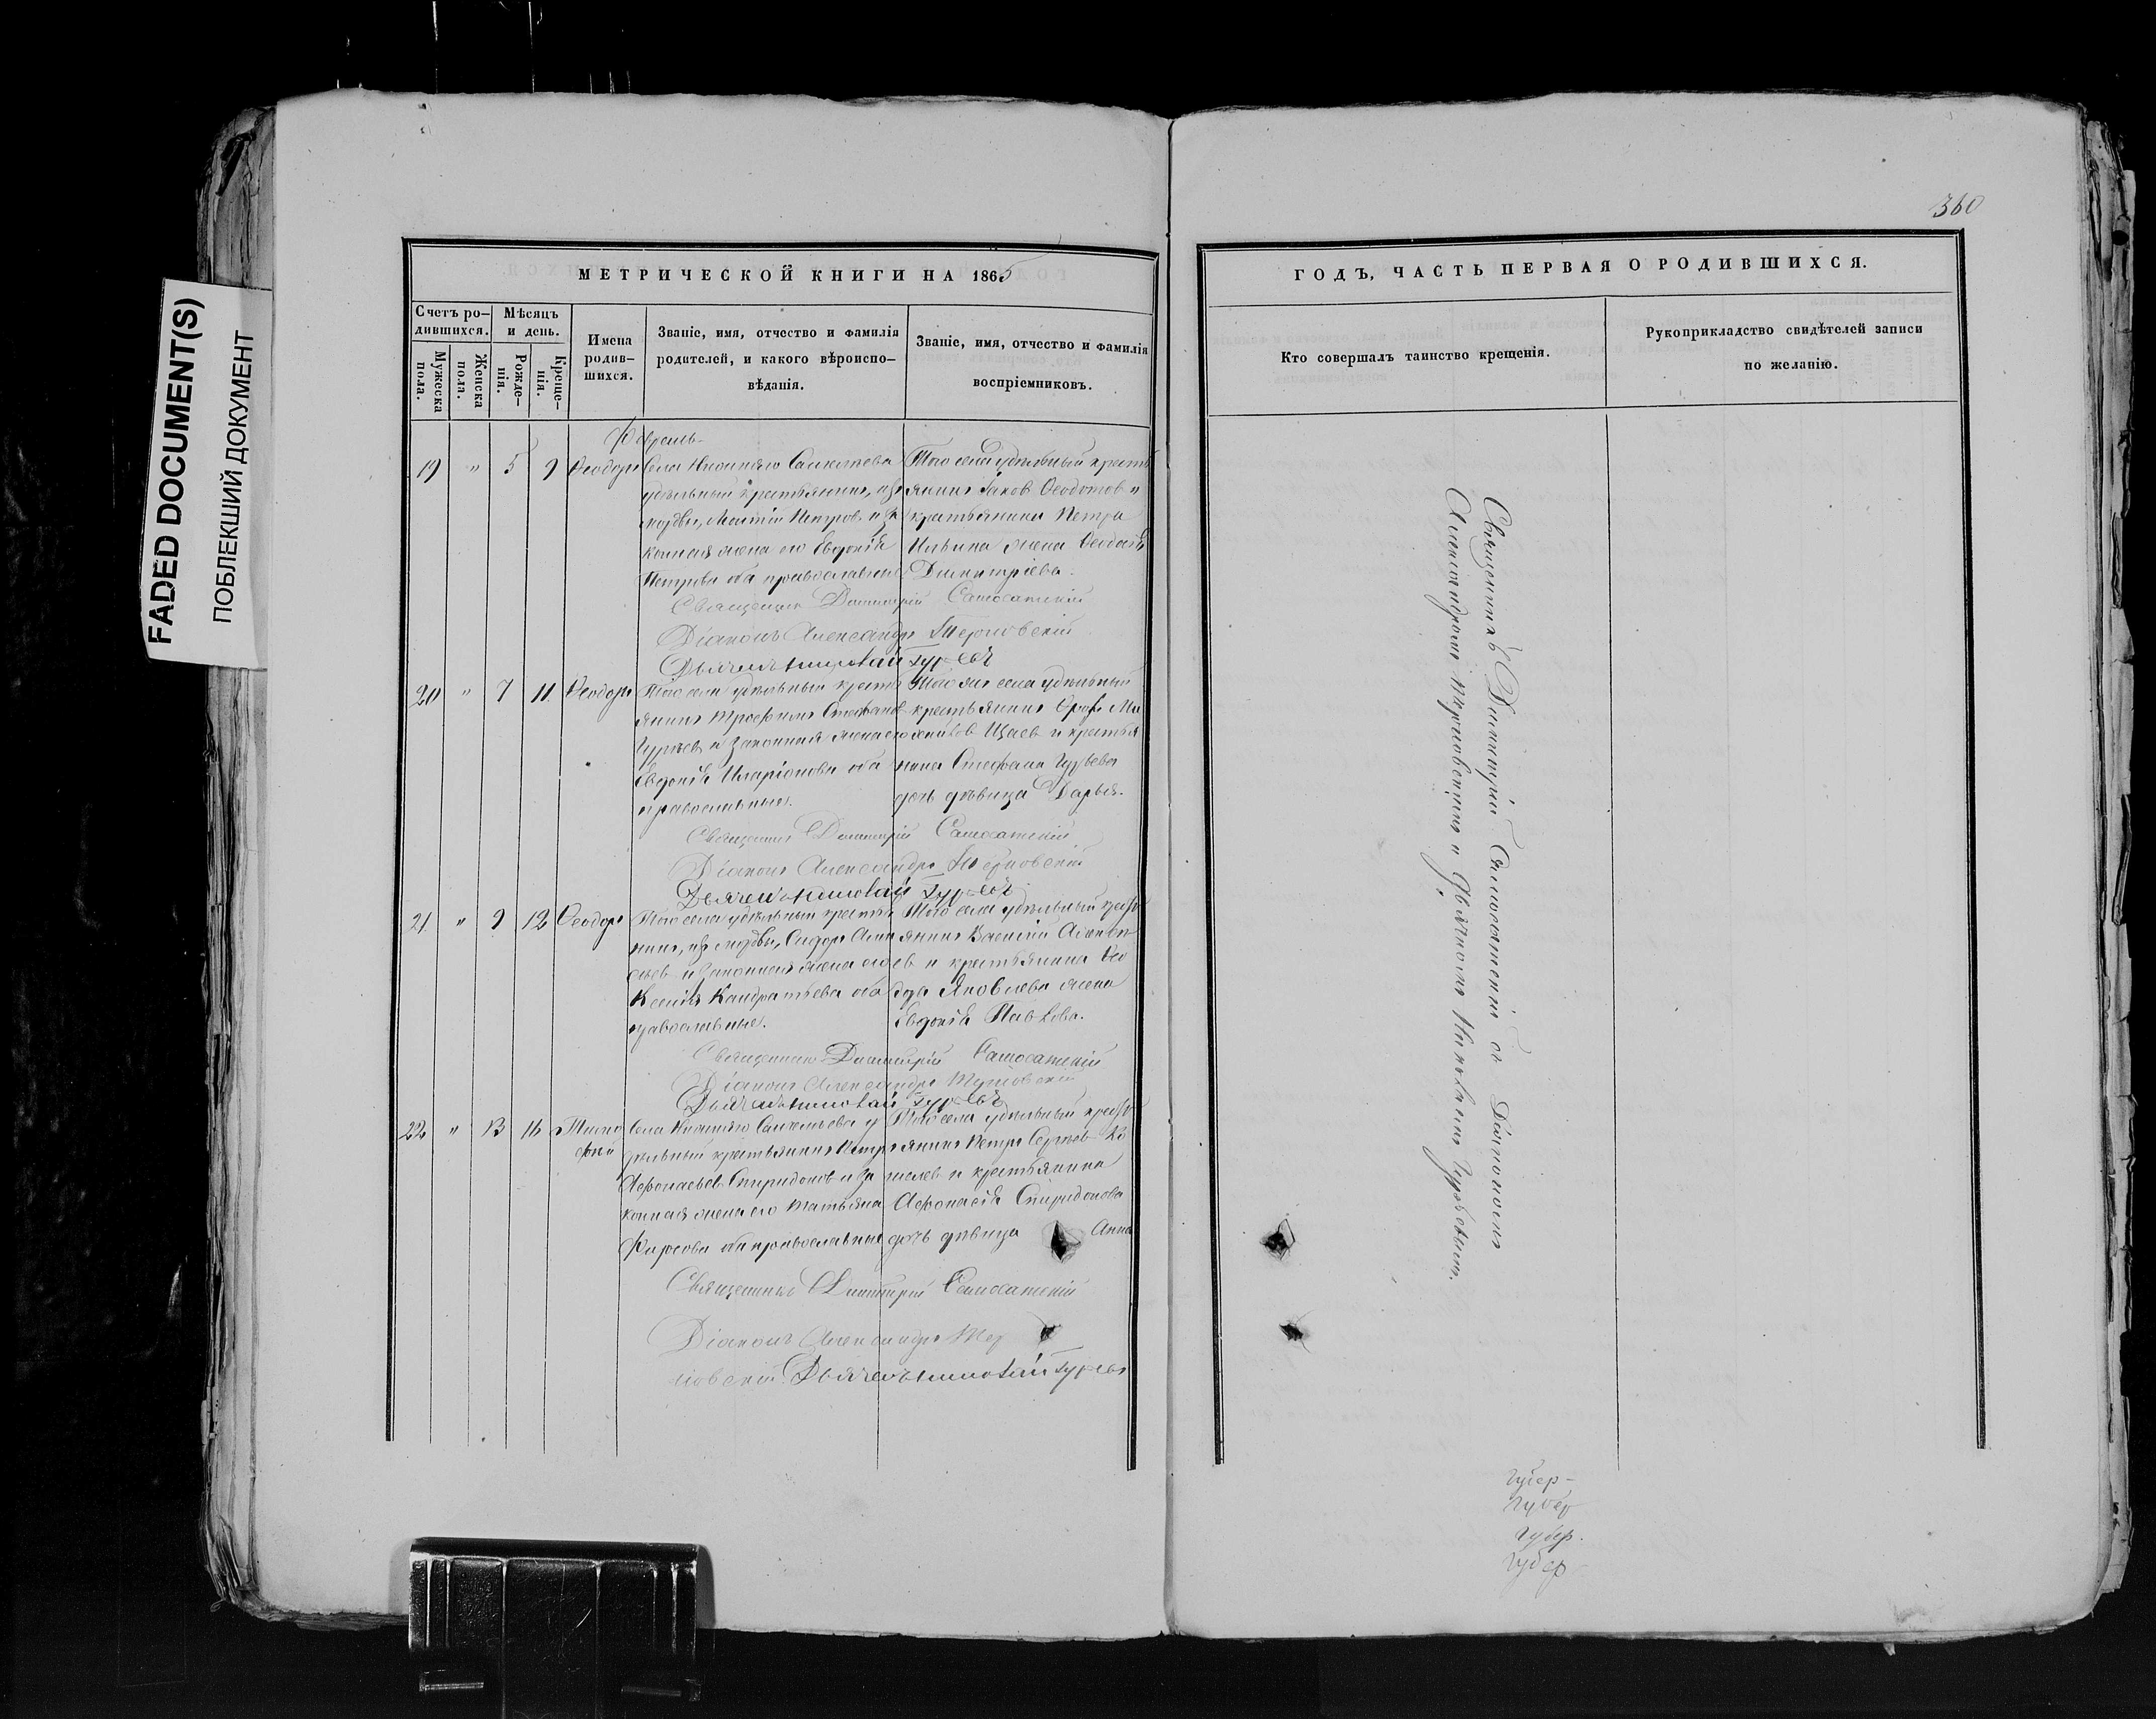 FADED DOCUMENT(S)
ПОБЛЕКШИЙ ДОКУМЕНТ
МЕТРИЧЕСКОЙ КНИГИ НА 1865
Счетъ ро-
дившихся.
Мѣсяцъ
и день.
Мужеска
пола.
Женска
пола.
Рожде-
нія.
Креще-
нія.
Имена
родив-
шихся.
Званіе, имя, отчество и фамилія
родителей, и какого вѣроиспо-
вѣданія.
Званіе, имя, отчество и фамилія
воспріемниковъ.
Февраль
19 " 5 9 Ѳеодоръ Села
удѣльный крестьянинъ, изъ
мордвы, Петровъ и за
конная жена его Евдокія
Петрова оба православные
Того села удѣльный кресть
янинъ Іаковъ Ѳеодотовъ и
крестьянина Петра
Ильина жена Ѳеодосія
Димитріева.
Священникъ Димитрій Самосатскій
Діаконъ Александръ Терновскій
Дьячекъ Николай Гурьевъ
20 " 7 11 Ѳеодоръ Того села удѣльный кресть
янинъ Трофимъ Стефановъ
Гурьевъ и законная жена его
Евдокія Иларіонова оба
православные.
Того же села удѣльный
крестьянинъ
Исаевъ и крестья
нина Стефана Гурьева
дочь дѣвица Дарья.
Священникъ Димитрій Самосатскій
Діаконъ Александръ Терновскій
Дьячекъ Николай Гурьевъ
21 " 9 12 Ѳеодоръ Того села удѣльный крестья
нинъ, изъ мордвы, Сидоръ
и законная жена его
Ксенія Кандратьева оба
православные.
Того села удѣльный кресть
янинъ Василій
и крестьянина Ѳео
дора Яковлева жена
Евдокія Павлова.
Священникъ Димитрій Самосатскій
Діаконъ Александръ Терновскій
Дьячекъ Николай Гурьевъ
22 " 13 16 Тимо
фей
Села у
дѣльный крестьянинъ Петръ
Афонасьевъ Спиридоновъ и за
конная жена его Татьяна
Фирсова оба православные
Того села удѣльный кресть
янинъ Петръ Сергѣевъ Ко
и крестьянина
Афонасія Спиридонова
дочь дѣвица Анна
Священникъ Димитрій Самосатскій
Діаконъ Александръ Тер
новскій Дьячекъ Николай Гурьевъ
360
ГОДЪ, ЧАСТЬ ПЕРВАЯ О РОДИВШИХСЯ.
Кто совершалъ таинство крещенія.
Рукоприкладство свидѣтелей записи
по желанію.
Священникъ Димитрій Самосатскій съ Діакономъ
Александромъ Терновскимъ и Дьячкомъ Николаемъ Гурьевымъ.
Губер-
Губер
Губер.
Губер